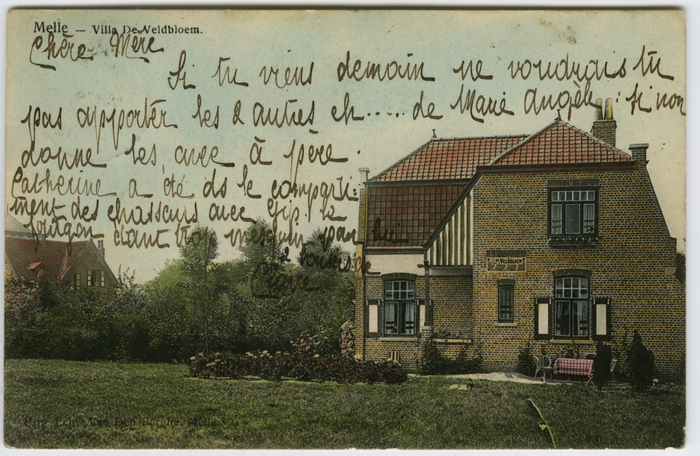 Melle — Villa De Veldbloem.
Chère Mère
Si tu viens demain ne voudrais tu
pas apporter les 2 autres ch..... de Marie Angèle; si non
donne les, avec à père.
Catherine a été ds le comparti-
ment des chasseurs avec gip. le
wagon étant trop
Claire